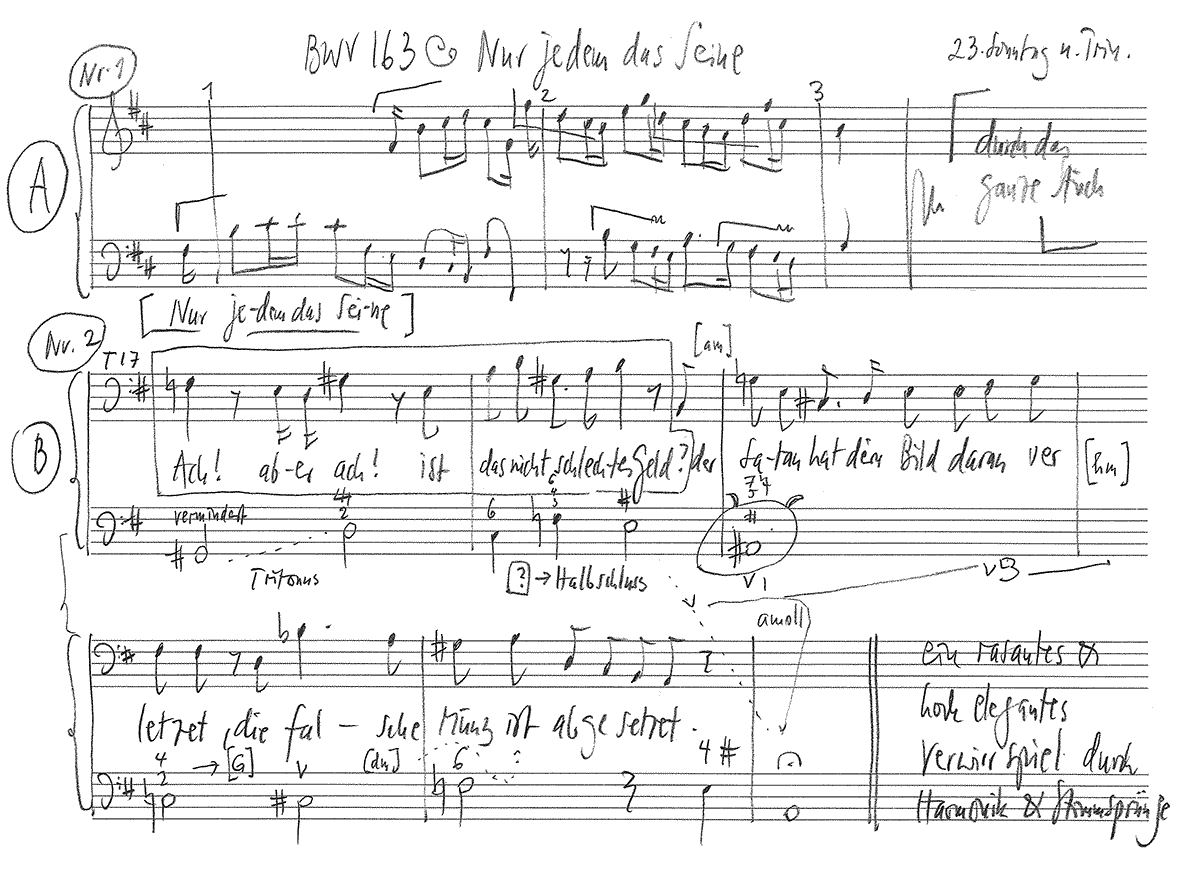 Nr. 1
BWV 163 Nur jedem das Seine
23. Sonntag n. Trin.
1 2 3
A
durch das
ganze Stück
[Nur je-dem das Sei-ne]
Nr. 2
T 17
[am]
B
Ach! ab-er ach! ist das nicht schlechtes Geld? der Sa-tan hat dein Bild daran ver
[hm]
vermindert
4 2 6 6 4 3 # 7 5 4 #
Tritonus
[?] → Halbschluss
V
V
amoll
letzet, die fal - sche Münz ist abgesetzet.
4 2 → [G] V [dm] 6 4 #
ein rasantes &
hoch elegantes
verwirrspiel durch
Harmonik & Stimmsprünge